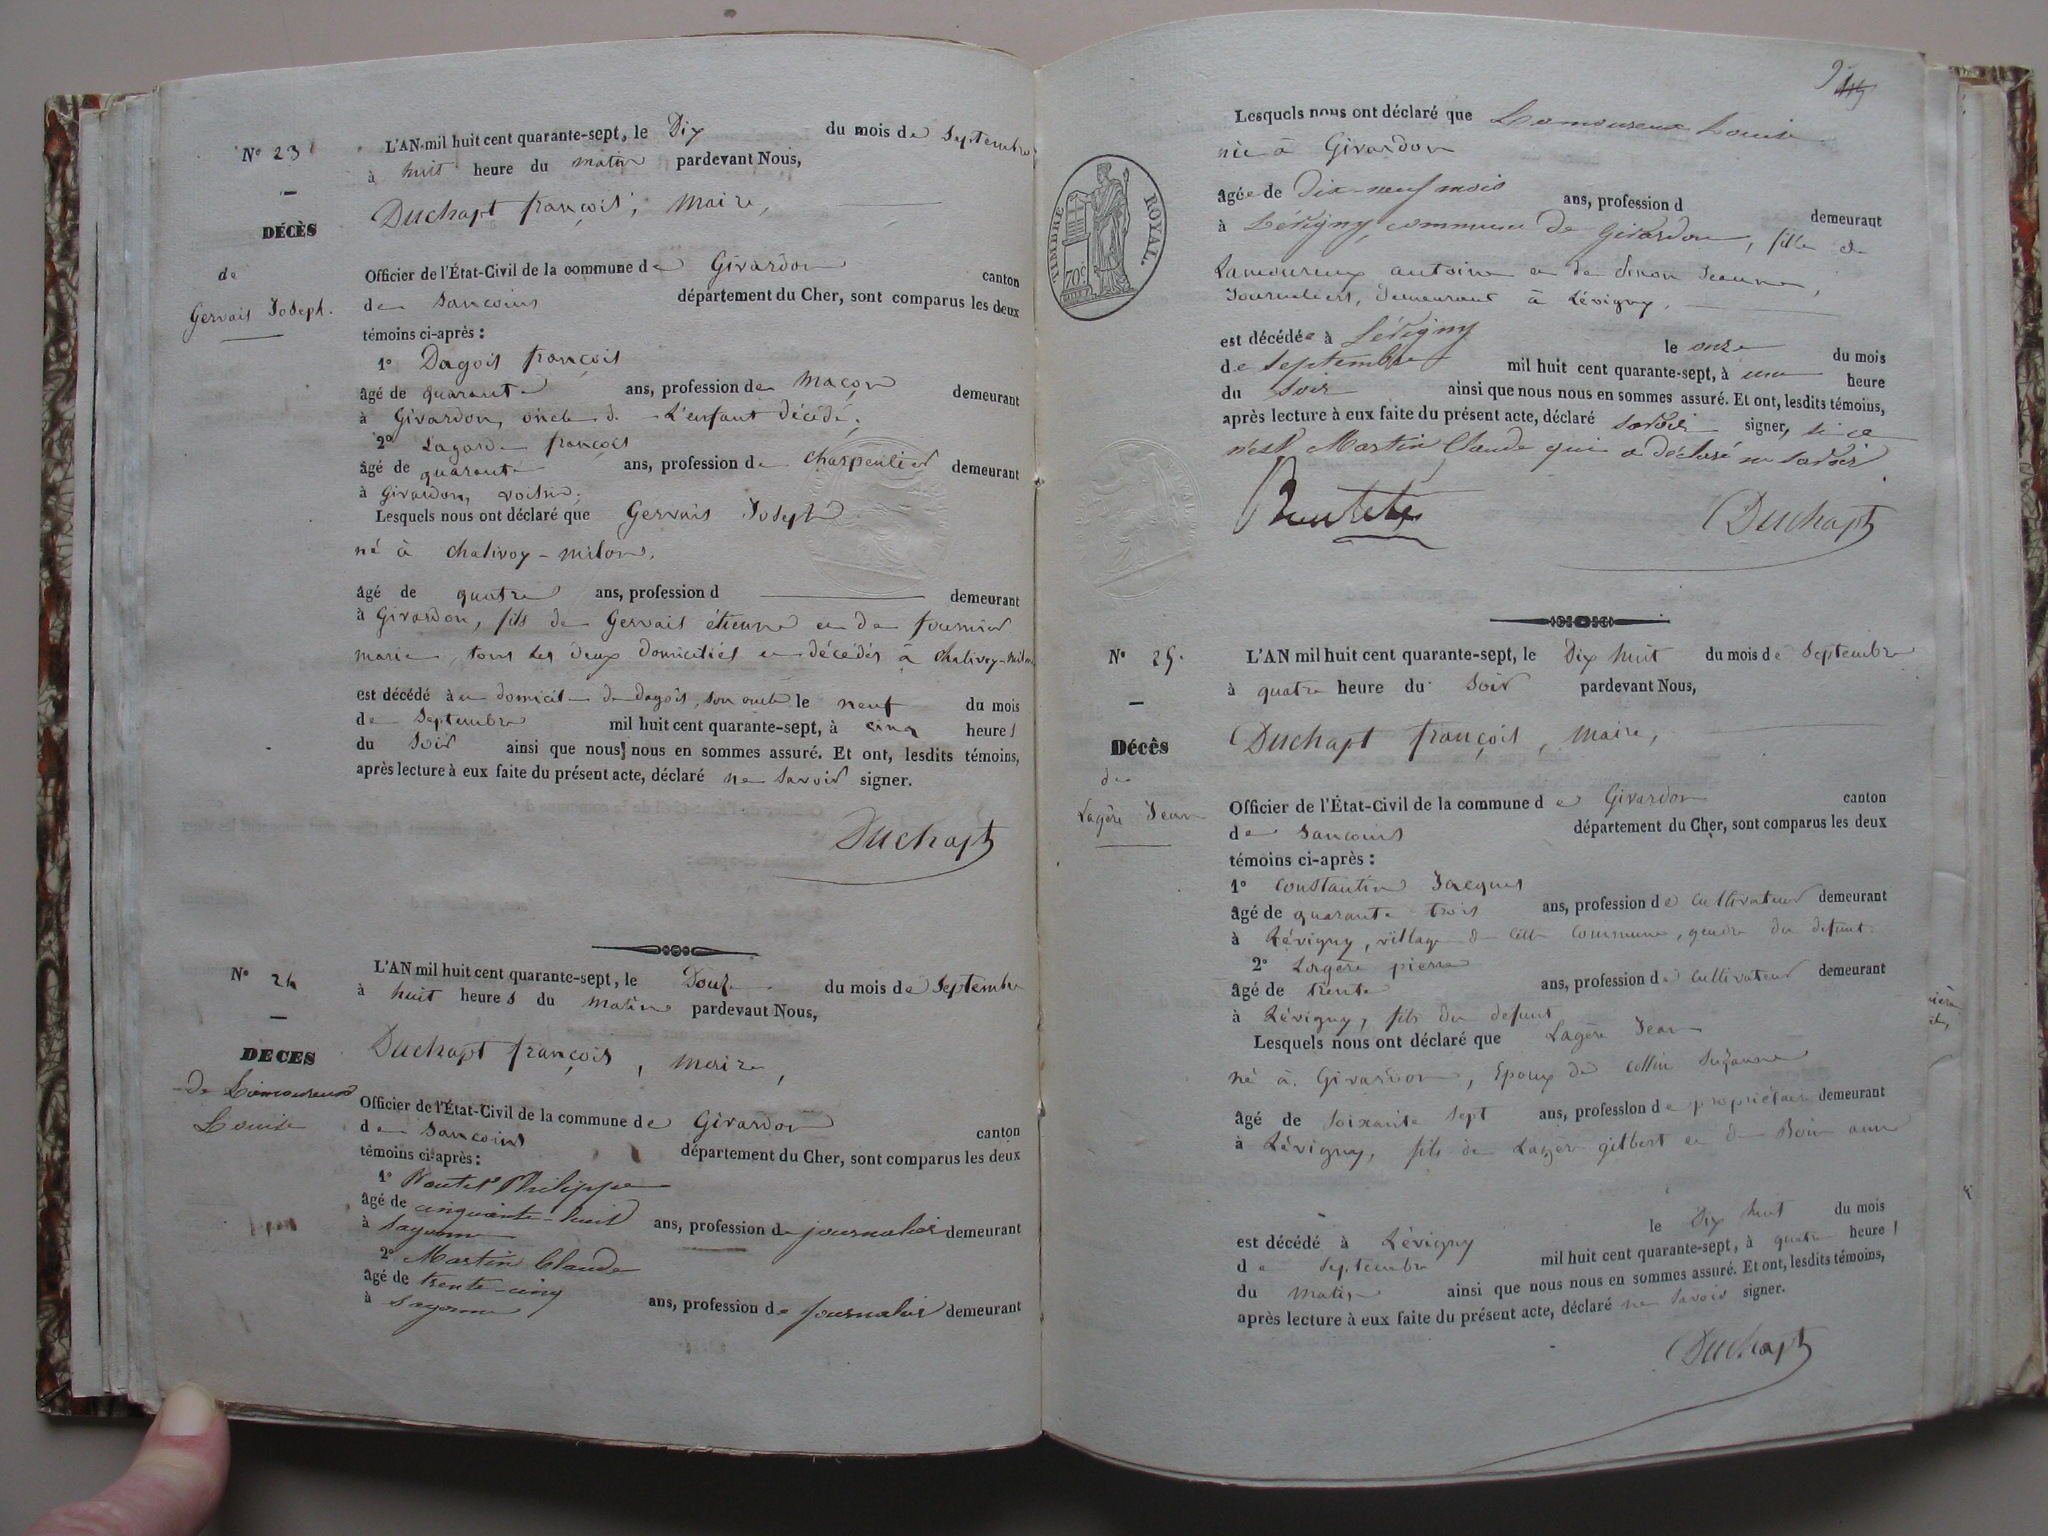 N° 23
DÉCÈS
de
Gervais Joseph.
L'AN mil huit cent quarante-sept, le Dix du mois de Septembre
à huit heure du matin pardevant Nous,
Duchapt françois, Maire,
Officier de l'État-Civil de la commune de Givardon canton
de Sancoins département du Cher, sont comparus les deux
témoins ci-après :
1° Dagois françois
âgé de quarante ans, profession de maçon demeurant
à Givardon, oncle de L'enfant décédé,
2° Lagarde françois
âgé de quarante ans, profession de charpentier demeurant
à Givardon, voisin,
Lesquels nous ont déclaré que Gervais Joseph
né à chalivoy-milon,
âgé de quatre ans, profession d demeurant
à Givardon, fils de Gervais étienne et de fournier
marie, tous les deux domiciliés et décédés à chalivoy-milon
est décédé à domicile de dagois, son oncle le neuf du mois
de Septembre mil huit cent quarante-sept, à cinq heures
du Soir ainsi que nous nous en sommes assuré. Et ont, lesdits témoins,
après lecture à eux faite du présent acte, déclaré ne Savoir signer.
Duchapt
N° 24
DECES
de Lamoureux
Louise
L'AN mil huit cent quarante-sept, le Douze du mois de Septembre
à huit heures du matin pardevant Nous,
Duchapt françois, maire,
Officier de l'État-Civil de la commune de Givardon canton
de Sancoins département du Cher, sont comparus les deux
témoins ci-après :
1° Philippe
âgé de cinquante-huit ans, profession de journalier demeurant
à Sayonne
2° Martin Claude
âgé de trente-cinq ans, profession de journalier demeurant
à Sayonne
TIMBRE ROYAL.
70c
Lesquels nous ont déclaré que Lamoureux Louise
née à Givardon
âgée de dix-neuf mois ans, profession d demeurant
à Lévigny, commune de Givardon, fille de
Lamoureux antoine et de Jeanne,
Journaliers, demeurant à Lévigny,
est décédée à Lévigny le onze du mois
de septembre mil huit cent quarante-sept, à une heure
du soir ainsi que nous nous en sommes assuré. Et ont, lesdits témoins,
après lecture à eux faite du présent acte, déclaré savoir signer, si ce
n'est Martin Claude qui a déclaré ne savoir
Duchapt
N° 25.
Décès
de
Lagère Jean
L'AN mil huit cent quarante-sept, le Dix huit du mois de Septembre
à quatre heure du Soir pardevant Nous,
Duchapt françois, maire,
Officier de l'État-Civil de la commune de Givardon canton
de Sancoins département du Cher, sont comparus les deux
témoins ci-après :
1° Constantin Jacques
âgé de quarante trois ans, profession de cultivateur demeurant
à Lévigny, village de cette commune, gendre du defunt
2° Lagère pierre
âgé de trente ans, profession de cultivateur demeurant
à Lévigny, fils du defunt
Lesquels nous ont déclaré que Lagère Jean
né à Givardon, Epoux de Collin Suzanne
âgé de soixante sept ans, profession de propriétaire demeurant
à Lévigny, fils de Lagère gilbert et de anne
est décédé à Lévigny le Dix huit du mois
de Septembre mil huit cent quarante-sept, à quatre heures
du matin ainsi que nous nous en sommes assuré. Et ont, lesdits témoins,
après lecture à eux faite du présent acte, déclaré ne Savoir signer.
Duchapt